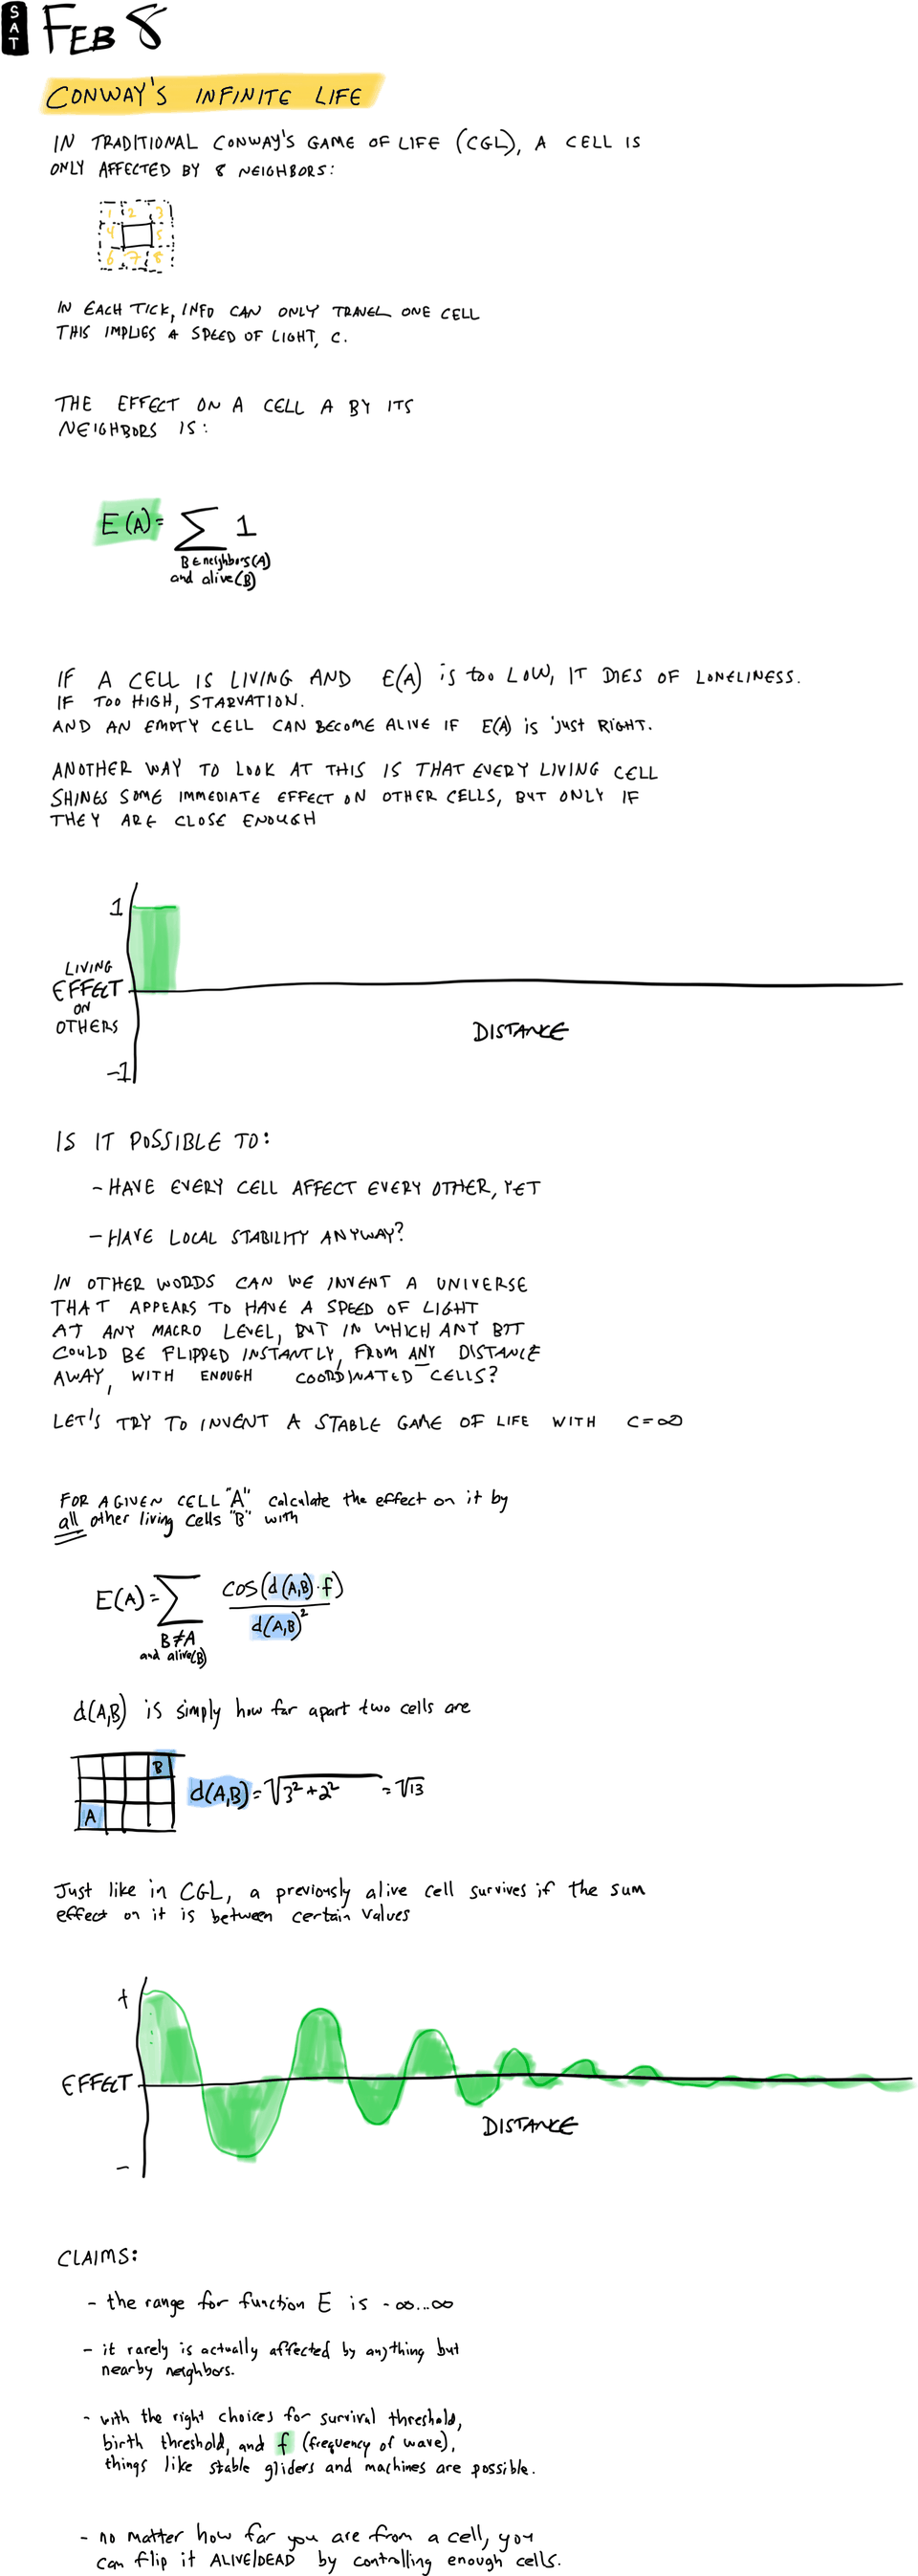 SAT
FEB 8
CONWAY'S INFINITE LIFE
IN TRADITIONAL CONWAY'S GAME OF LIFE (CGL), A CELL IS
ONLY AFFECTED BY 8 NEIGHBORS:
1 2 3
4 5
6 7 8
IN EACH TICK, INFO CAN ONLY TRAVEL ONE CELL
THIS IMPLIES A SPEED OF LIGHT, C.
THE EFFECT ON A CELL A BY ITS
NEIGHBORS IS:
E(A) = ∑ 1
B ∈ neighbors(A)
and alive(B)
IF A CELL IS LIVING AND E(A) is too LOW, IT DIES OF LONELINESS.
IF TOO HIGH, STARVATION.
AND AN EMPTY CELL CAN BECOME ALIVE IF E(A) is just RIGHT.
ANOTHER WAY TO LOOK AT THIS IS THAT EVERY LIVING CELL
SHINES SOME IMMEDIATE EFFECT ON OTHER CELLS, BUT ONLY IF
THEY ARE CLOSE ENOUGH
1
LIVING
EFFECT
ON
OTHERS
DISTANCE
-1
IS IT POSSIBLE TO:
- HAVE EVERY CELL AFFECT EVERY OTHER, YET
- HAVE LOCAL STABILITY ANYWAY?
IN OTHER WORDS CAN WE INVENT A UNIVERSE
THAT APPEARS TO HAVE A SPEED OF LIGHT
AT ANY MACRO LEVEL, BUT IN WHICH ANY BIT
COULD BE FLIPPED INSTANTLY, FROM ANY DISTANCE
AWAY, WITH ENOUGH COORDINATED CELLS?
LET'S TRY TO INVENT A STABLE GAME OF LIFE WITH C=∞
FOR A GIVEN CELL "A" calculate the effect on it by
all other living cells "B" with
E(A) = ∑ cos(d(A,B)·f)
d(A,B)²
B≠A
and alive(B)
d(A,B) is simply how far apart two cells are
B
d(A,B) = √3²+2² = √13
A
Just like in CGL, a previously alive cell survives if the sum
effect on it is between certain values
+
EFFECT
DISTANCE
-
CLAIMS:
- the range for function E is -∞...∞
- it rarely is actually affected by anything but
nearby neighbors.
- with the right choices for survival threshold,
birth threshold, and f (frequency of wave),
things like stable gliders and machines are possible.
- no matter how far you are from a cell, you
can flip it ALIVE/DEAD by controlling enough cells.